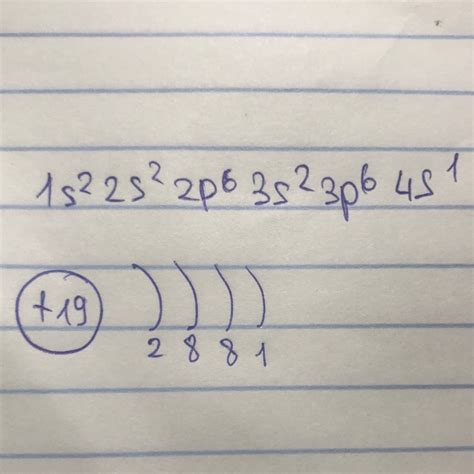 1s² 2s² 2p⁶ 3s² 3p⁶ 4s¹
+19 ) ) ) )
2 8 8 1